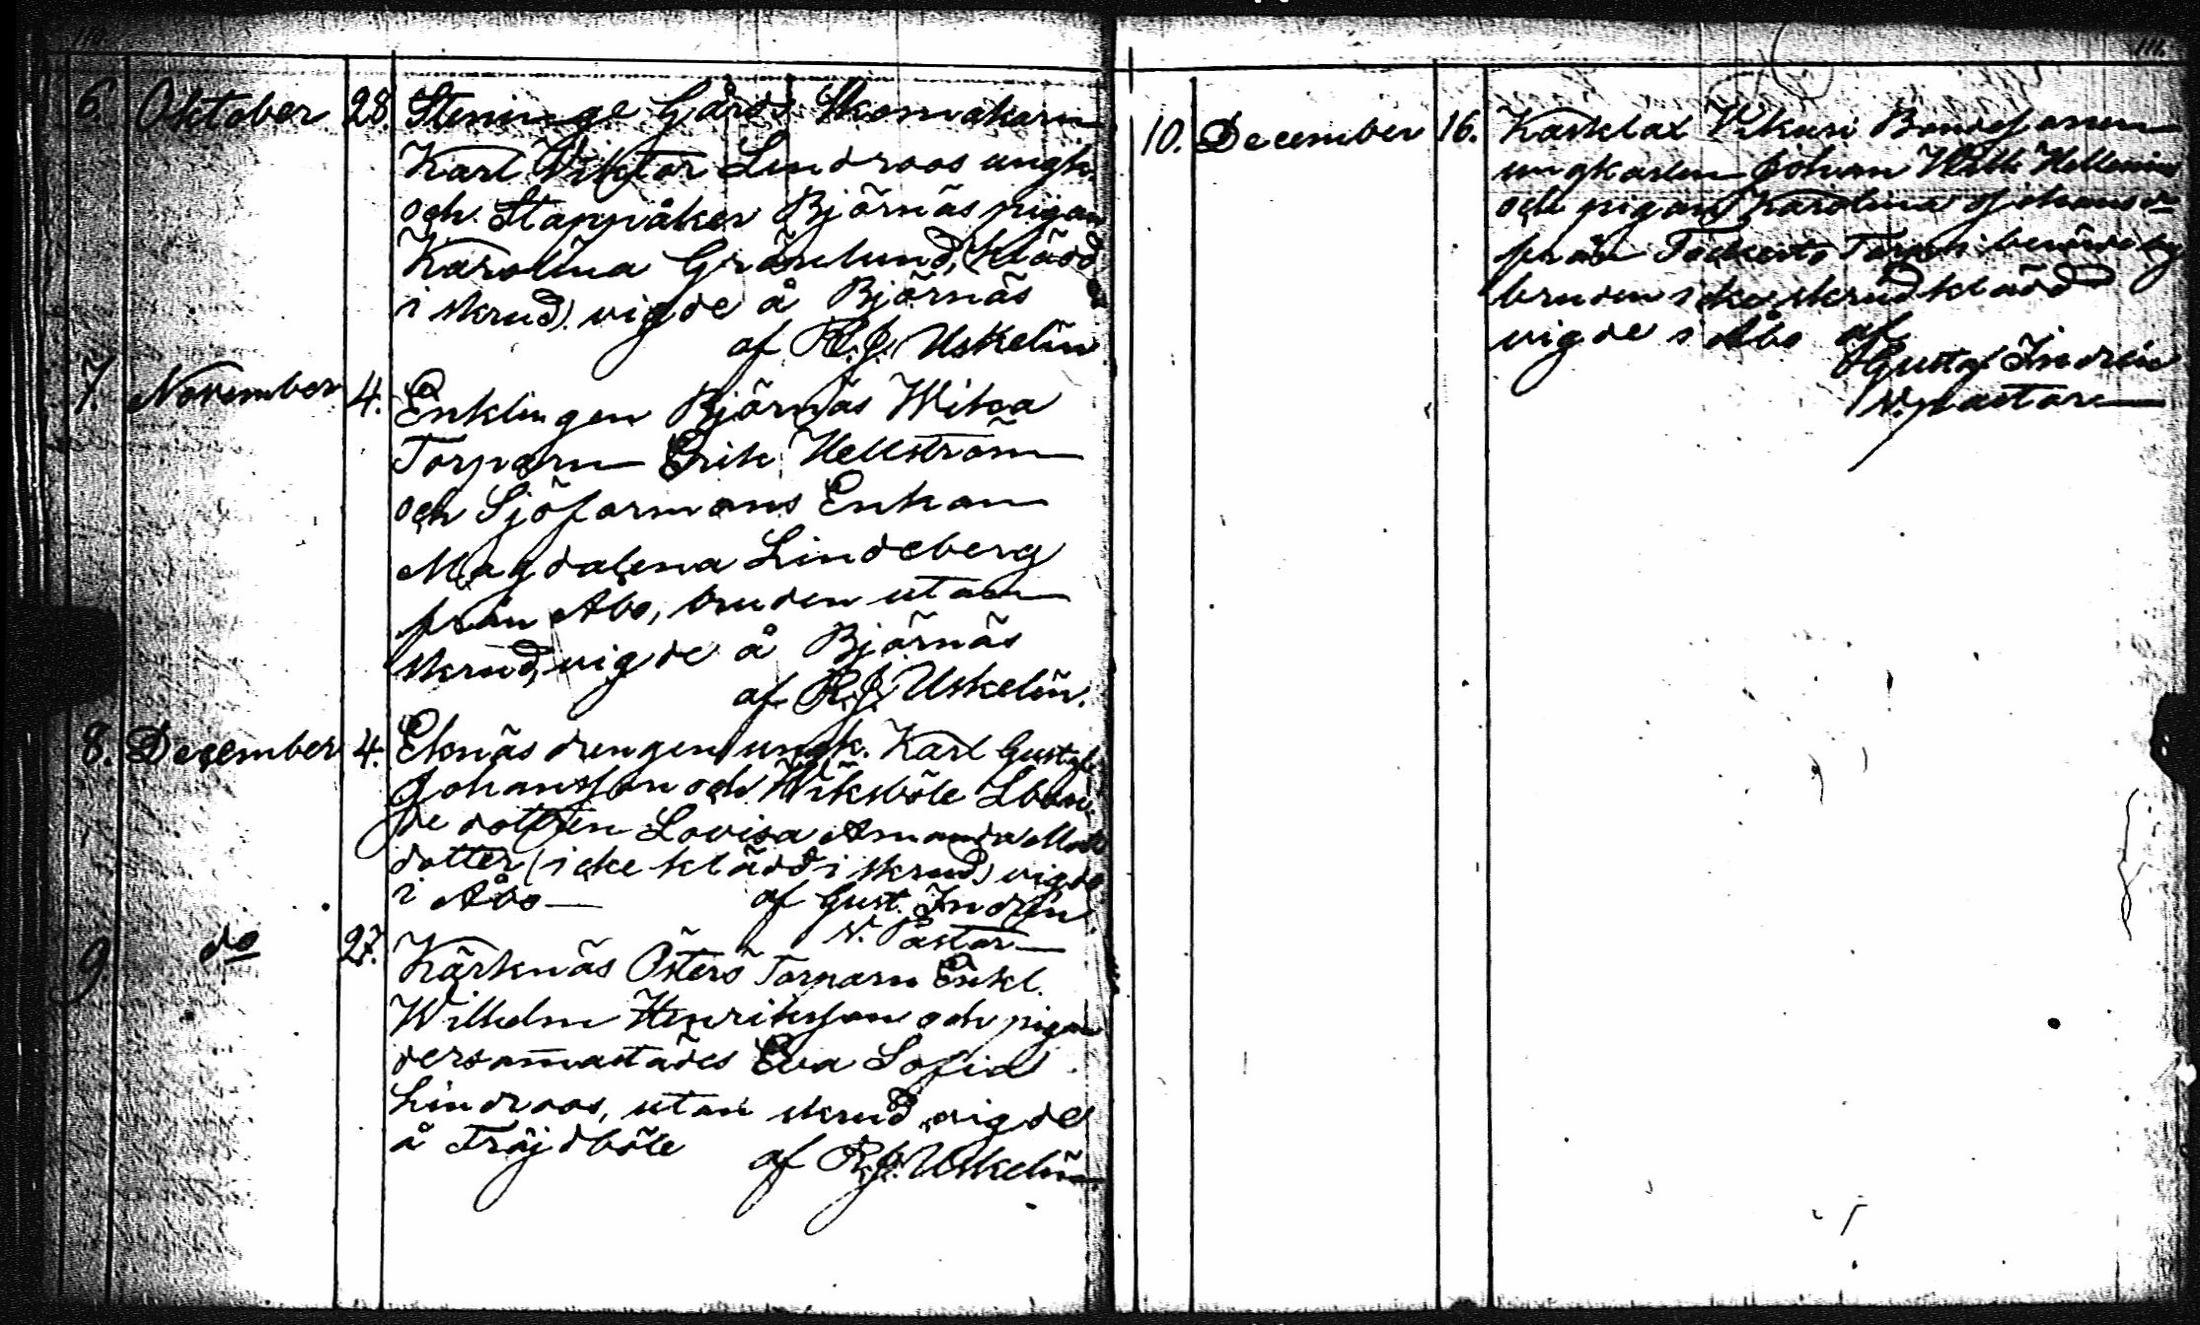 110.
6. Oktober 28. Steninge Gårds Skomakarn
Karl Viktor Lindroos ungk.
och Stappåker Björnäs pigan
Karolina Grönlund, (klädd
i skrud) vigde å Björnäs
af R.J. Uskelin
7. November 4. Enklingen Björnäs Wikoa
Torparn Erik Hellström
och Sjöfarmans Enkan
Magdalena Lindeberg
från Åbo, bruden utan
skrud, vigde å Björnäs
af R.J. Uskelin.
8. December 4. Eknäs drengen ungk. Karl Gustaf
Johansson och Wiksböle Lbon-
de dottren Lovisa Amanda Mats
dotter (icke klädd i skrud) vigde
i Åbo af Gust. Indrén
v. Pastor
9 do 27. Kärknäs Österö Torparn Enkl.
Wilhelm Henriksson och pigan
dersammastädes Eva Sofia
Lindroos, utan skrud, vigde
å Tröjdböle af R.J. Uskelin.
111.
10. December 16. Kasklax Bondesonen
ungkarlen Johan Wilh. Hellenius
och pigan Karolina Johansd:r
från by
bruden icke skrudklädd
vigde i Åbo af
Gustaf Indrén
v. pastor